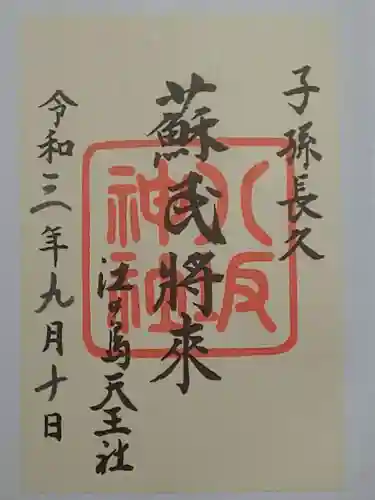 子孫長久
蘇民將來
八坂神社
江の島天王社
令和三年九月十日